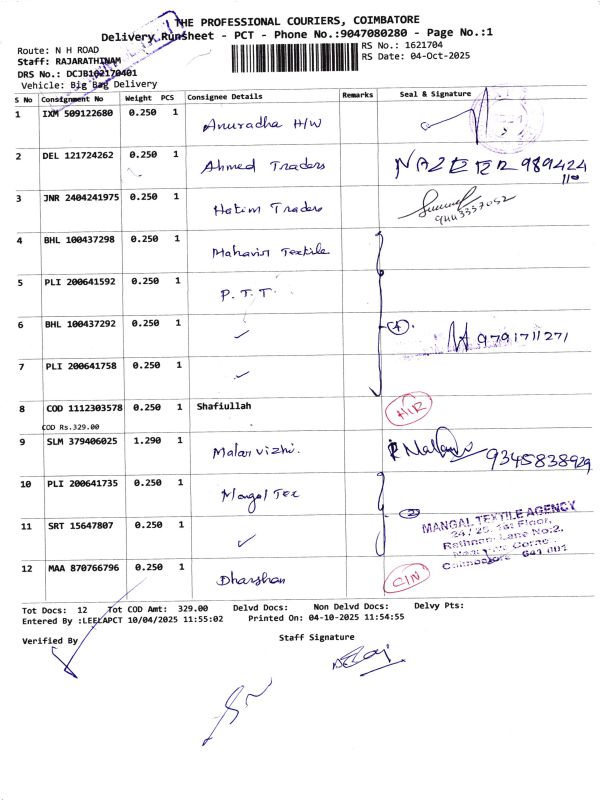 THE PROFESSIONAL COURIERS, COIMBATORE
Delivery Runsheet - PCT - Phone No.:9047080280 - Page No.:1
Route: N H ROAD
RS No.: 1621704
Staff: RAJARATHINAM
RS Date: 04-Oct-2025
DRS No.: DCJB102170401
Vehicle: Big Bag Delivery
S No Consignment No Weight PCS Consignee Details Remarks Seal & Signature
1 IXM 509122680 0.250 1 Anuradha H/W
2 DEL 121724262 0.250 1 Ahmed Traders NAZEER 989424
110
3 JNR 2404241975 0.250 1 Hatim Traders
9443357052
4 BHL 100437298 0.250 1 Mahavir Textile
5 PLI 200641592 0.250 1 P. T. T.
6 BHL 100437292 0.250 1 ✓ 4 9791711271
7 PLI 200641758 0.250 1 ✓
8 COD 1112303578 0.250 1 Shafiullah H/R
COD Rs.329.00
9 SLM 379406025 1.290 1 Malar vizhi. 9345838929
10 PLI 200641735 0.250 1 Mangal Tex
11 SRT 15647807 0.250 1 ✓ 2 MANGAL TEXTILE AGENCY
24 / 25, 1st Floor,
Rathnam Lane No.2,
Coimbatore 641 001
12 MAA 870766796 0.250 1 Dharshan C/N
Tot Docs: 12 Tot COD Amt: 329.00 Delvd Docs: Non Delvd Docs: Delvy Pts:
Entered By :LEELAPCT 10/04/2025 11:55:02 Printed On: 04-10-2025 11:54:55
Verified By Staff Signature